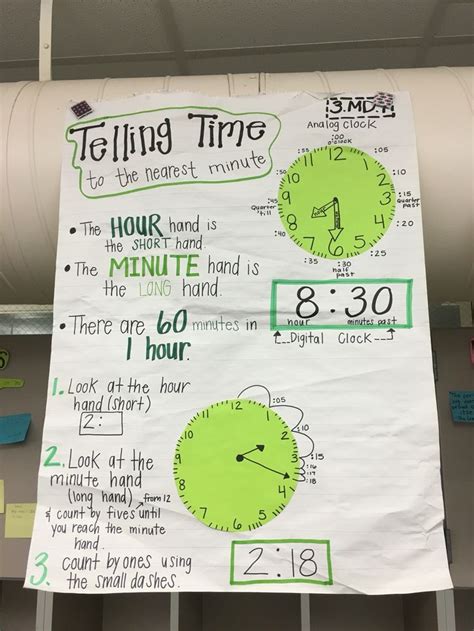 3.MD.1
Telling Time
to the nearest minute
Analog Clock
:00
o'clock
:55
:05
:50
:10
:45
Quarter
'till
:15
Quarter
past
:40
:20
:35
:25
:30
half
past
12
11
10
9
8
7
6
5
4
3
2
1
• The HOUR hand is
the SHORT hand.
• The MINUTE hand is
the LONG hand.
8:30
hour
minutes past
Digital Clock
• There are 60 minutes in
1 hour.
1. Look at the hour
hand (short)
2:
2. Look at the
minute hand
(long hand)
from 12
& count by fives until
you reach the minute
hand.
3. count by ones using
the small dashes.
12
11
10
9
8
7
6
5
4
3
2
1
:05
:10
:15
:16
:17
:18
2:18